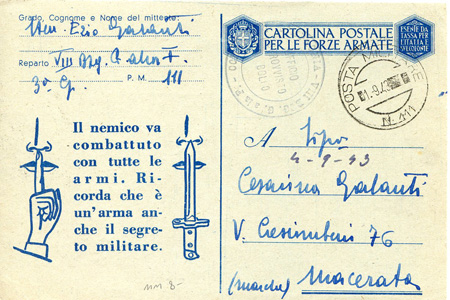 Grado, Cognome e Nome del mittente
Ezio Galanti
Reparto VIII
P. M. 111
3ª
Il nemico va
combattuto
con tutte le
armi. Ri-
corda che è
un'arma an-
che il segre-
to militare.
CARTOLINA POSTALE
PER LE FORZE ARMATE
ESENTE DA
TASSA PER
L'ITALIA E
POSTA MILITARE
N. 111
A
4-9-43
Cesarina Galanti
V. Crescimbeni 76
(Marche) Macerata